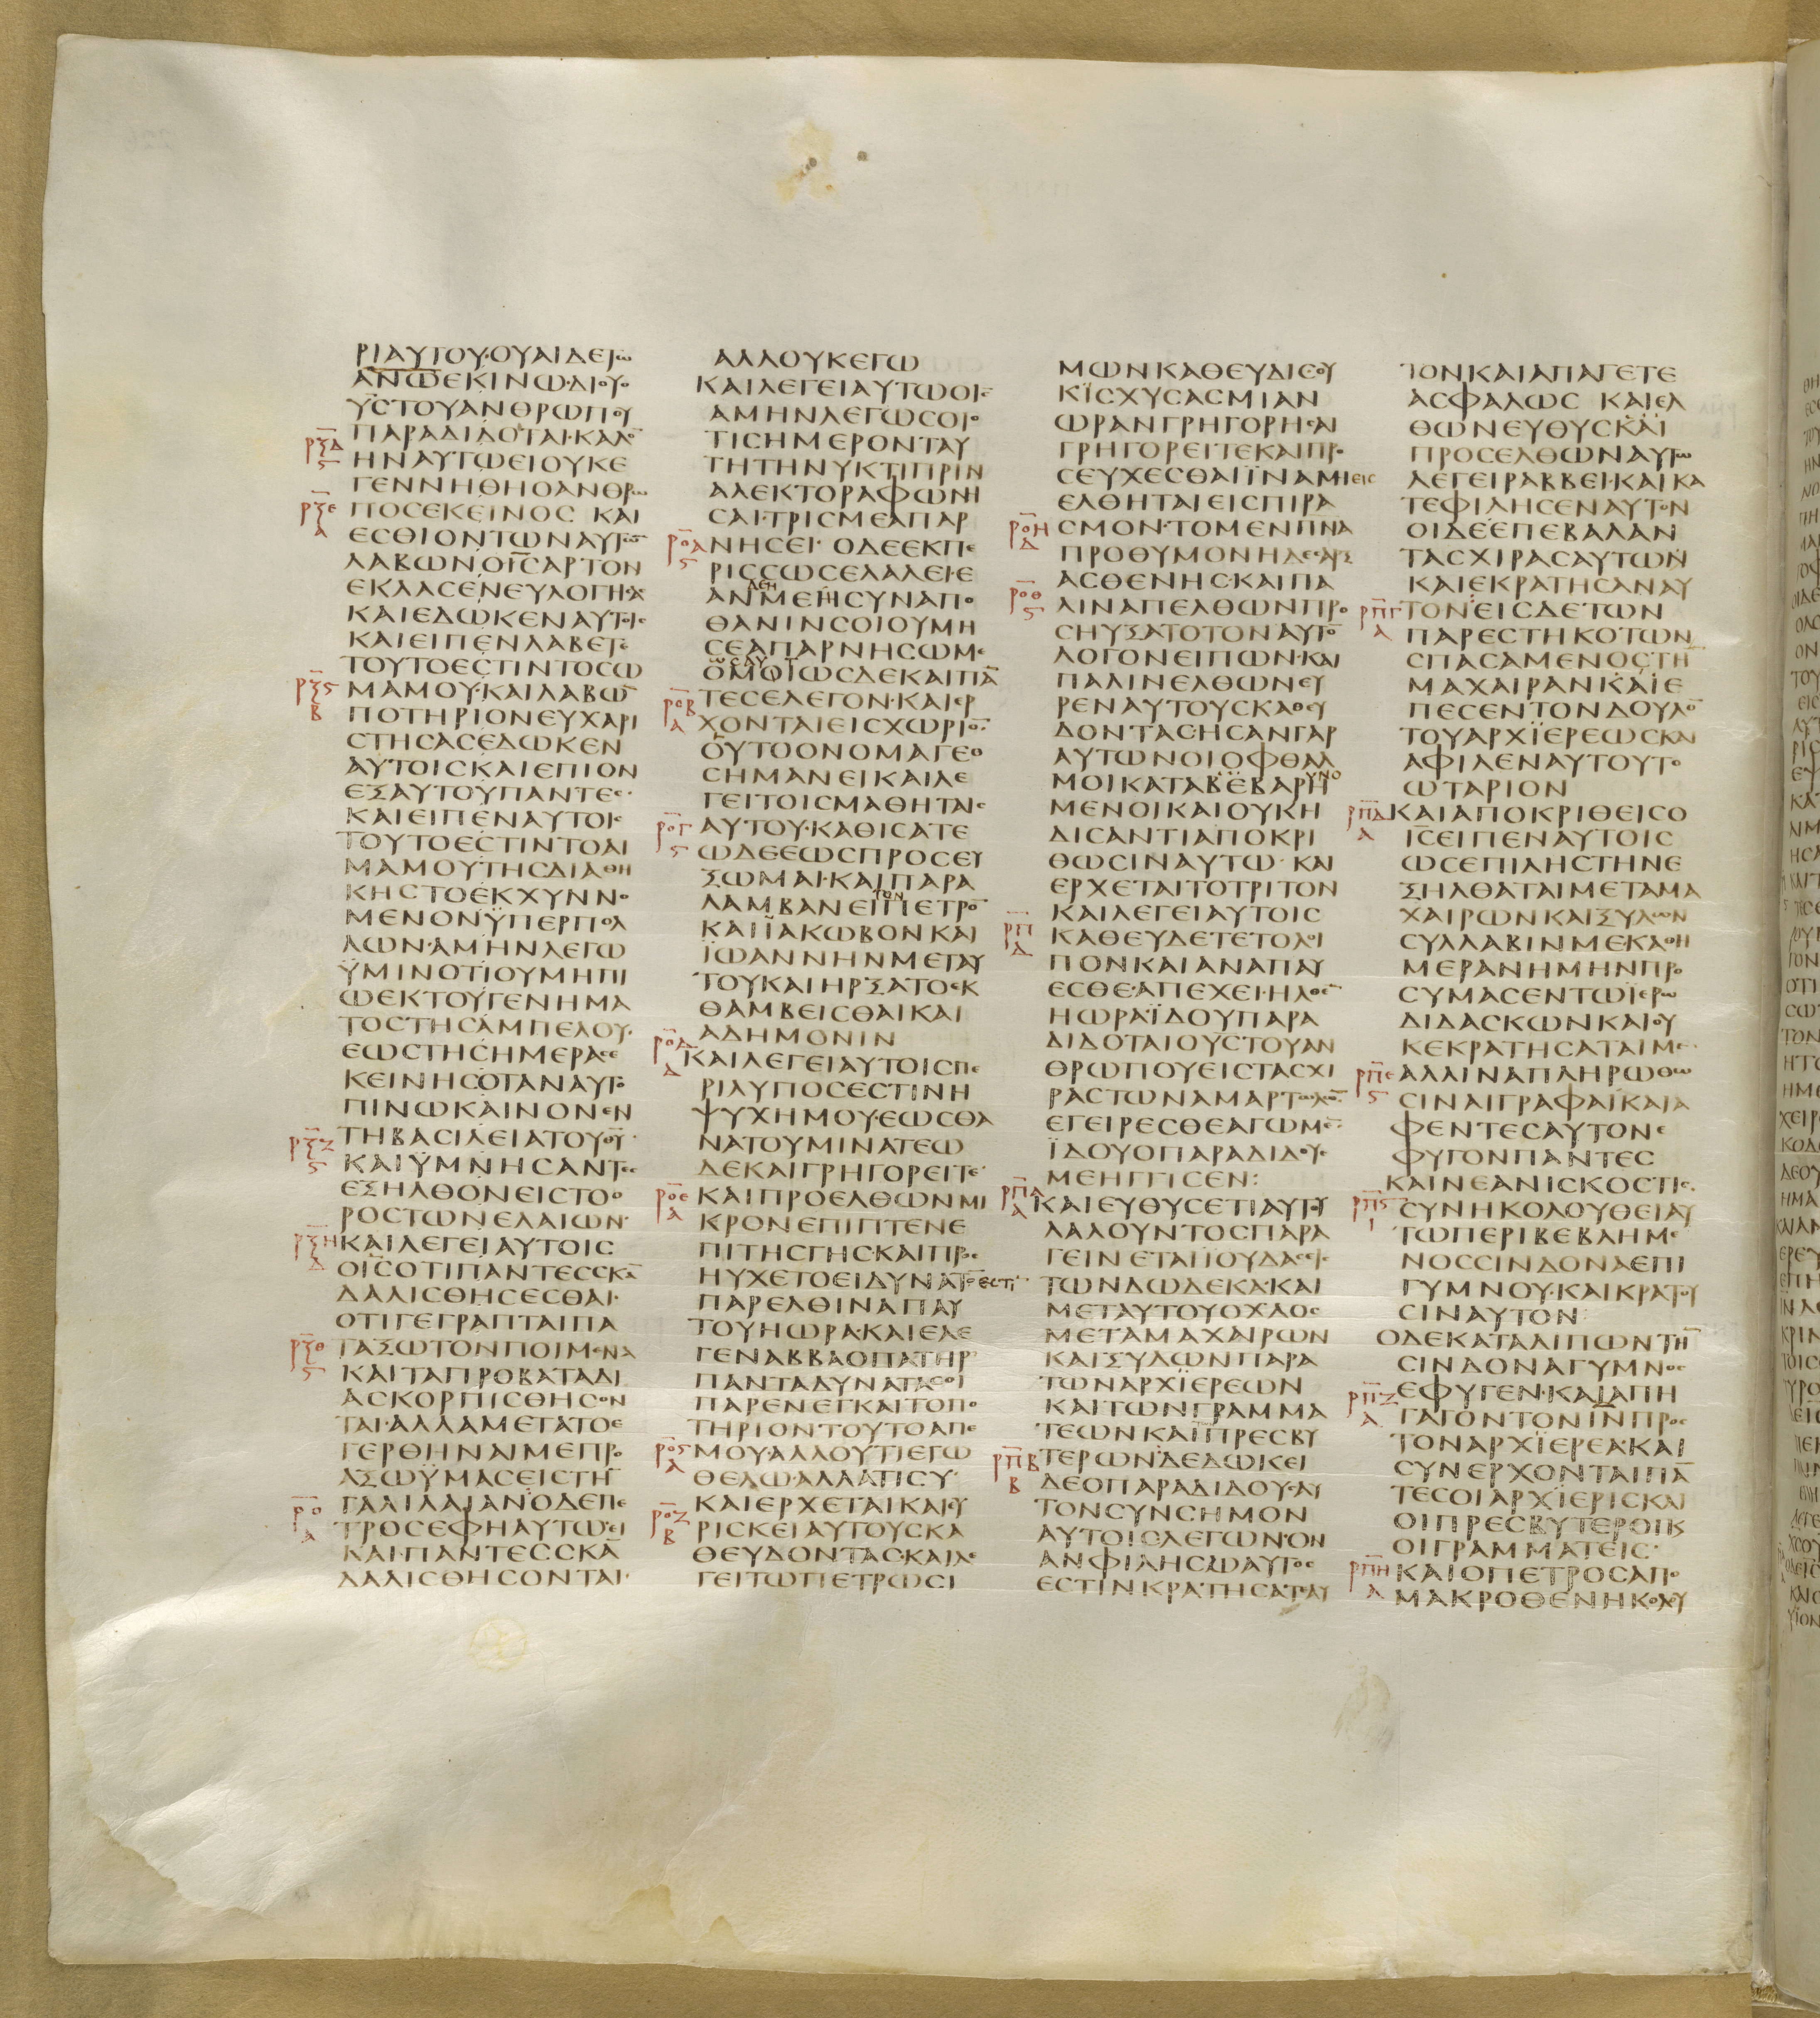 ΡΙΑΥΤΟΥ·ΟΥΑΙΔΕΤΩ
ΑΝΩΕΚΙΝΩ·ΔΙΟΥΟ
ΥΣΤΟΥΑΝΘΡΩΠΟΥ
ΠΑΡΑΔΙΔΟΤΑΙ·ΚΑΛΟ̅
ΗΝΑΥΤΩΕΙΟΥΚΕ
ΓΕΝΝΗΘΗΟΑΝΘΡΩ
ΠΟΣΕΚΕΙΝΟΣ ΚΑΙ
ΕΣΘΙΟΝΤΩΝΑΥΤΩ̅
ΛΑΒΩΝΟΙ̅Σ̅ΑΡΤΟΝ
ΕΚΛΑΣΕΝΕΥΛΟΓΗΣΑΣ
ΚΑΙΕΔΩΚΕΝΑΥΤΟΙΣ
ΚΑΙΕΙΠΕΝΛΑΒΕΤΕ
ΤΟΥΤΟΕΣΤΙΝΤΟΣΩ
ΜΑΜΟΥ·ΚΑΙΛΑΒΩ̅
ΠΟΤΗΡΙΟΝΕΥΧΑΡΙ
ΣΤΗΣΑΣΕΔΩΚΕΝ
ΑΥΤΟΙΣΚΑΙΕΠΙΟΝ
ΕΞΑΥΤΟΥΠΑΝΤΕΣ·
ΚΑΙΕΙΠΕΝΑΥΤΟΙΣ
ΤΟΥΤΟΕΣΤΙΝΤΟΑΙ
ΜΑΜΟΥΤΗΣΔΙΑΘΗ
ΚΗΣΤΟΕΚΧΥΝΝΟ
ΜΕΝΟΝΫΠΕΡΠΟΛ
ΛΩΝ·ΑΜΗΝΛΕΓΩ
ΫΜΙΝΟΤΙΟΥΜΗΠΙ
ΩΕΚΤΟΥΓΕΝΗΜΑ
ΤΟΣΤΗΣΑΜΠΕΛΟΥ·
ΕΩΣΤΗΣΗΜΕΡΑΣΕ
ΚΕΙΝΗΣΟΤΑΝΑΥΤΟ
ΠΙΝΩΚΑΙΝΟΝΕΝ
ΤΗΒΑΣΙΛΕΙΑΤΟΥΘ̅Υ̅·
ΚΑΙΫΜΝΗΣΑΝΤΕΣ
ΕΞΗΛΘΟΝΕΙΣΤΟΟ
ΡΟΣΤΩΝΕΛΑΙΩΝ·
ΚΑΙΛΕΓΕΙΑΥΤΟΙΣ
ΟΙ̅Σ̅ΟΤΙΠΑΝΤΕΣΣΚΑ̅
ΔΑΛΙΣΘΗΣΕΣΘΑΙ·
ΟΤΙΓΕΓΡΑΠΤΑΙΠΑ
ΤΑΞΩΤΟΝΠΟΙΜΕΝΑ
ΚΑΙΤΑΠΡΟΒΑΤΑΔΙ
ΑΣΚΟΡΠΙΣΘΗΣΟΝ
ΤΑΙ·ΑΛΛΑΜΕΤΑΤΟΕ
ΓΕΡΘΗΝΑΙΜΕΠΡΟ
ΑΞΩΫΜΑΣΕΙΣΤΗ̅
ΓΑΛΙΛΑΙΑΝ·ΟΔΕΠΕ
ΤΡΟΣΕΦΗΑΥΤΩ·ΕΙ
ΚΑΙ·ΠΑΝΤΕΣΣΚΑ̅
ΔΑΛΙΣΘΗΣΟΝΤΑΙ·
ΑΛΛΟΥΚΕΓΩ
ΚΑΙΛΕΓΕΙΑΥΤΩΟΙ̅Σ̅
ΑΜΗΝΛΕΓΩΣΟΙΟ
ΤΙΣΗΜΕΡΟΝΤΑΥ
ΤΗΤΗΝΥΚΤΙΠΡΙΝ
ΑΛΕΚΤΟΡΑΦΩΝΗ
ΣΑΙ·ΤΡΙΣΜΕΑΠΑΡ
ΝΗΣΕΙ· ΟΔΕΕΚΠΕ
ΡΙΣΣΩΣΕΛΑΛΕΙ·Ε
ΔΕΗ
ΑΝΜΕΗΣΥΝΑΠΟ
ΘΑΝΙΝΣΟΙΟΥΜΗ
ΣΕΑΠΑΡΝΗΣΩΜΕ
ΩΣΑΥ
ΟΜΟΙΩΣΔΕΚΑΙΠΑ̅
ΤΕΣΕΛΕΓΟΝ·ΚΑΙΕΡ
ΧΟΝΤΑΙΕΙΣΧΩΡΙΟ̅·
ΟΥΤΟΟΝΟΜΑΓΕΘ
ΣΗΜΑΝΕΙΚΑΙΛΕ
ΓΕΙΤΟΙΣΜΑΘΗΤΑΙΣ
ΑΥΤΟΥ·ΚΑΘΙΣΑΤΕ
ΩΔΕΕΩΣΠΡΟΣΕΥ
ΞΩΜΑΙ·ΚΑΙΠΑΡΑ
ΤΟΝ
ΛΑΜΒΑΝΕΙΠΕΤΡΟ̅
ΚΑΙΪΑΚΩΒΟΝΚΑΙ
ΪΩΑΝΝΗΝΜΕΤΑΥ
ΤΟΥΚΑΙΗΡΞΑΤΟΕΚ
ΘΑΜΒΕΙΣΘΑΙΚΑΙ
ΑΔΗΜΟΝΙΝ
ΚΑΙΛΕΓΕΙΑΥΤΟΙΣΠΕ
ΡΙΛΥΠΟΣΕΣΤΙΝΗ
ΨΥΧΗΜΟΥ·ΕΩΣΘΑ
ΝΑΤΟΥΜΙΝΑΤΕΩ
ΔΕΚΑΙΓΡΗΓΟΡΕΙΤΕ·
ΚΑΙΠΡΟΕΛΘΩΝΜΙ
ΚΡΟΝΕΠΙΠΤΕΝΕ
ΠΙΤΗΣΓΗΣ·ΚΑΙΠΡΟΣ
ΗΥΧΕΤΟΕΙΔΥΝΑΤΟ̅ΕΣΤΙ̅
ΠΑΡΕΛΘΙΝΑΠΑΥ
ΤΟΥΗΩΡΑ·ΚΑΙΕΛΕ
ΓΕΝΑΒΒΑΟΠΑΤΗΡ
ΠΑΝΤΑΔΥΝΑΤΑΣΟΙ
ΠΑΡΕΝΕΓΚΑΙΤΟΠΟ
ΤΗΡΙΟΝΤΟΥΤΟΑΠΕ
ΜΟΥ·ΑΛΛΟΥΤΙΕΓΩ
ΘΕΛΩ·ΑΛΛΑΤΙΣΥ·
ΚΑΙΕΡΧΕΤΑΙΚΑΙΕΥ
ΡΙΣΚΕΙΑΥΤΟΥΣΚΑ
ΘΕΥΔΟΝΤΑΣ·ΚΑΙΛΕ
ΓΕΙΤΩΠΕΤΡΩΣΙ
ΜΩΝΚΑΘΕΥΔΙΣΟΥ
ΚΪΣΧΥΣΑΣΜΙΑΝ
ΩΡΑΝΓΡΗΓΟΡΗΣΑΙ
ΓΡΗΓΟΡΕΙΤΕΚΑΙΠΡΟ
ΣΕΥΧΕΣΘΑΙΪΝΑΜΗΕΙΣ
ΕΛΘΗΤΑΙΕΙΣΠΙΡΑ
ΣΜΟΝ·ΤΟΜΕΝΠΝΑ
ΠΡΟΘΥΜΟΝΗΔΕΣΑΡΞ
ΑΣΘΕΝΗΣ·ΚΑΙΠΑ
ΛΙΝΑΠΕΛΘΩΝΠΡΟ
ΣΗΥΞΑΤΟΤΟΝΑΥΤΟ̅
ΛΟΓΟΝΕΙΠΩΝ·ΚΑΙ
ΠΑΛΙΝΕΛΘΩΝΕΥ
ΡΕΝΑΥΤΟΥΣΚΑΘΕΥ
ΔΟΝΤΑΣ·ΗΣΑΝΓΑΡ
ΑΥΤΩΝΟΙΟΦΘΑΛ
ΜΟΙΚΑΤΑΒΕΒΑΡΗΥΝΟ
ΜΕΝΟΙΚΑΙΟΥΚΗ
ΔΙΣΑΝΤΙΑΠΟΚΡΙ
ΘΩΣΙΝΑΥΤΩ· ΚΑΙ
ΕΡΧΕΤΑΙΤΟΤΡΙΤΟΝ
ΚΑΙΛΕΓΕΙΑΥΤΟΙΣ
ΚΑΘΕΥΔΕΤΕΤΟΛΟΙ
ΠΟΝΚΑΙΑΝΑΠΑΥ
ΕΣΘΕ·ΑΠΕΧΕΙ·ΗΛΘΕ̅
ΗΩΡΑ·ΪΔΟΥΠΑΡΑ
ΔΙΔΟΤΑΙΟΥΣΤΟΥΑΝ
ΘΡΩΠΟΥΕΙΣΤΑΣΧΙ
ΡΑΣΤΩΝΑΜΑΡΤΩΛΩ̅·
ΕΓΕΙΡΕΣΘΕΑΓΩΜΕ̅·
ΪΔΟΥΟΠΑΡΑΔΙΔΟΥΣ
ΜΕΗΓΓΙΣΕΝ:
ΚΑΙΕΥΘΥΣΕΤΙΑΥΤΟΥ
ΛΑΛΟΥΝΤΟΣΠΑΡΑ
ΓΕΙΝΕΤΑΙΪΟΥΔΑΣΕΙΣ
ΤΩΝΔΩΔΕΚΑ·ΚΑΙ
ΜΕΤΑΥΤΟΥΟΧΛΟΣ
ΜΕΤΑΜΑΧΑΙΡΩΝ
ΚΑΙΞΥΛΩΝΠΑΡΑ
ΤΩΝΑΡΧΪΕΡΕΩΝ
ΚΑΙΤΩΝΓΡΑΜΜΑ
ΤΕΩΝΚΑΙΠΡΕΣΒΥ
ΤΕΡΩΝ·ΔΕΔΩΚΕΙ
ΔΕΟΠΑΡΑΔΙΔΟΥΣΑΥ
ΤΟΝΣΥΝΣΗΜΟΝ
ΑΥΤΟΙΣΛΕΓΩΝ·ΟΝ
ΑΝΦΙΛΗΣΩΑΥΤΟΣ
ΕΣΤΙΝΚΡΑΤΗΣΑΤΑΙΑΥ
ΤΟΝΚΑΙΑΠΑΓΕΤΕ
ΑΣΦΑΛΩΣ ΚΑΙΕΛ
ΘΩΝΕΥΘΥΣΚΑΙ
ΠΡΟΣΕΛΘΩΝΑΥΤΩ
ΛΕΓΕΙΡΑΒΒΕΙ·ΚΑΙΚΑ
ΤΕΦΙΛΗΣΕΝΑΥΤΟΝ
ΟΙΔΕΕΠΕΒΑΛΑΝ
ΤΑΣΧΙΡΑΣΑΥΤΩΝ
ΚΑΙΕΚΡΑΤΗΣΑΝΑΥ
ΤΟΝ·ΕΙΣΔΕΤΩΝ
ΠΑΡΕΣΤΗΚΟΤΩΝ
ΣΠΑΣΑΜΕΝΟΣΤΗ̅
ΜΑΧΑΙΡΑΝΚΑΙΕ
ΠΕΣΕΝΤΟΝΔΟΥΛΟ̅
ΤΟΥΑΡΧΪΕΡΕΩΣΚΑΙ
ΑΦΙΛΕΝΑΥΤΟΥΤΟ
ΩΤΑΡΙΟΝ
ΚΑΙΑΠΟΚΡΙΘΕΙΣΟ
Ι̅Σ̅ΕΙΠΕΝΑΥΤΟΙΣ
ΩΣΕΠΙΛΗΣΤΗΝΕ
ΞΗΛΘΑΤΑΙΜΕΤΑΜΑ
ΧΑΙΡΩΝΚΑΙΞΥΛΩΝ
ΣΥΛΛΑΒΙΝΜΕ·ΚΑΘΗ
ΜΕΡΑΝΗΜΗΝΠΡΟ
ΣΥΜΑΣΕΝΤΩΪΕΡΩ
ΔΙΔΑΣΚΩΝΚΑΙΟΥ
ΚΕΚΡΑΤΗΣΑΤΑΙΜΕ·
ΑΛΛΙΝΑΠΛΗΡΩΘΩ
ΣΙΝΑΙΓΡΑΦΑΙ·ΚΑΙΑ
ΦΕΝΤΕΣΑΥΤΟΝΕ
ΦΥΓΟΝΠΑΝΤΕΣ
ΚΑΙΝΕΑΝΙΣΚΟΣΤΙΣ
ΣΥΝΗΚΟΛΟΥΘΕΙΑΥ
ΤΩΠΕΡΙΒΕΒΛΗΜΕ
ΝΟΣΣΙΝΔΟΝΑΕΠΙ
ΓΥΜΝΟΥ·ΚΑΙΚΡΑΤΟΥ
ΣΙΝΑΥΤΟΝ
ΟΔΕΚΑΤΑΛΙΠΩΝΤΗ̅
ΣΙΝΔΟΝΑΓΥΜΝΟΣ
ΕΦΥΓΕΝ·ΚΑΙΑΠΗ
ΓΑΓΟΝΤΟΝΙ̅Ν̅ΠΡΟΣ
ΤΟΝΑΡΧΪΕΡΕΑ·ΚΑΙ
ΣΥΝΕΡΧΟΝΤΑΙΠΑ̅
ΤΕΣΟΙΑΡΧΪΕΡΙΣΚΑΙ
ΟΙΠΡΕΣΒΥΤΕΡΟΙΚ
ΟΙΓΡΑΜΜΑΤΕΙΣ·
ΚΑΙΟΠΕΤΡΟΣΑΠΟ
ΜΑΚΡΟΘΕΝΗΚΟΛΟΥ